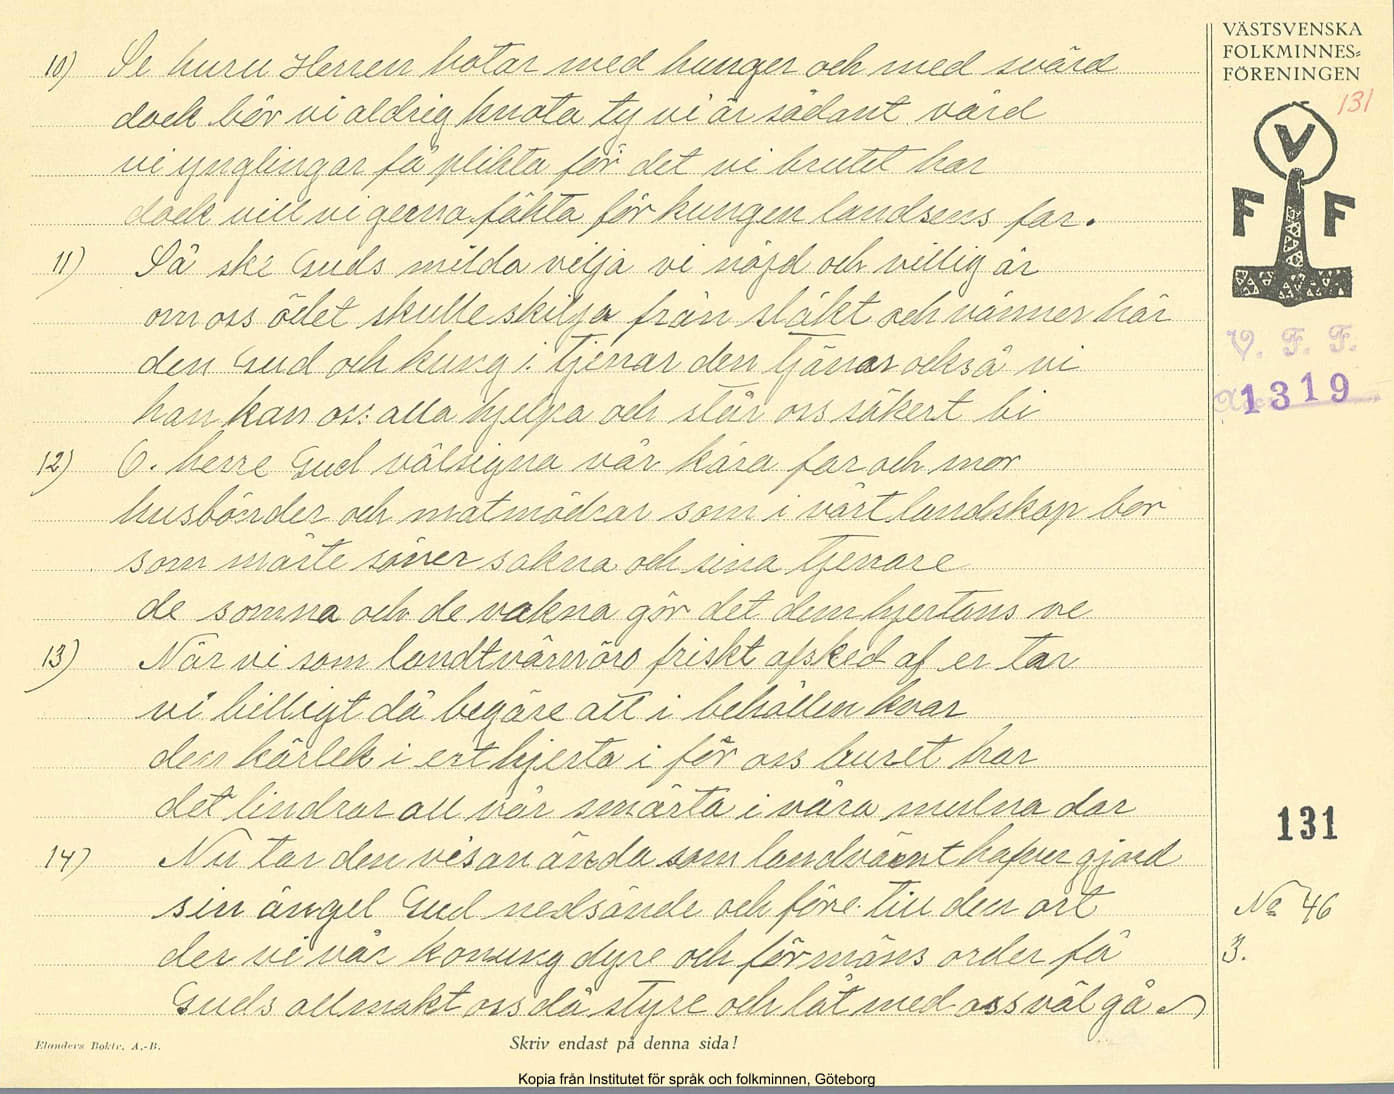 VÄSTSVENSKA
FOLKMINNES=
FÖRENINGEN
131
V
F F
V. F. F.
1319
10) Se huru Herren hotar med hunger och med svärd
dock bör vi aldrig knota ty vi är sådant värd
vi ynglingar få plikta för det vi brutit har
dock vill vi gerna fäkta för kungen landsens far.
11) Så ske Guds milda vilja vi nöjd och villig är
om oss ödet skulle skilja från släkt och vänner här
den Gud och kung i tjenar den tjänar också vi
han kan oss alla hjelpa och står oss säkert bi
12) O. herre Gud välsigna vår kära far och mor
husbönder och matmödrar som i vårt landskap bor
som måste söner sakna och sina tjenare
de somna och de vakna gör det dem hjertans ve
13) När vi som landtvärnörs friskt afsked af er tar
vi billigt då begäre att i behållen kvar
den kärlek i ert hjerta i för oss buret har
det lindrar all vår smärta i våra mulna dar
14) Nu tar den visan ända som landvärnt hafver gjord
sin ängel Gud nedsände och före till den ort
der vi vår konung dyre och förmäns order få
Guds allmakt oss då styre och låt med oss väl gå
131
No 46
3.
Elanders Boktr. A.-B.
Skriv endast på denna sida!
Kopia från Institutet för språk och folkminnen, Göteborg